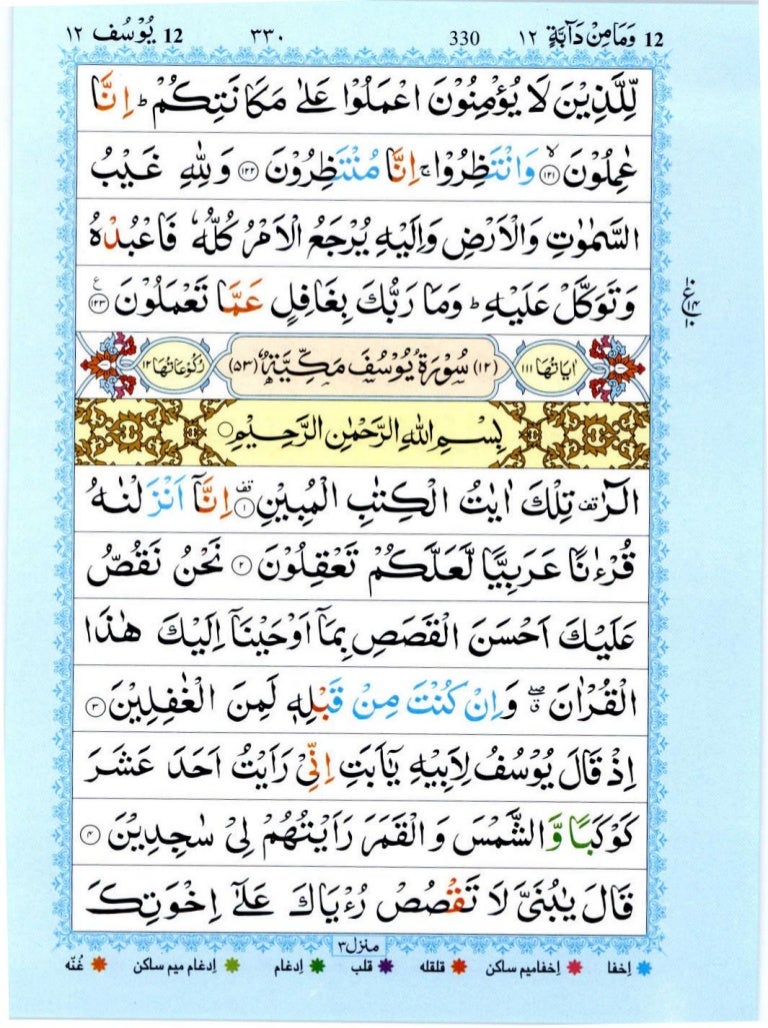 12 وَمَا مِنْ دَآبَّةٍ ١٢ 330 ٣٣٠ 12 يُوْسُف ١٢
لِّلَّذِيْنَ لَا يُؤْمِنُوْنَ اعْمَلُوْا عَلٰى مَكَانَتِكُمْ ؕ اِنَّا
عٰمِلُوْنَ ۙ‏﴿۱۲۱﴾ وَانْتَظِرُوْا ۚ اِنَّا مُنْتَظِرُوْنَ ﴿۱۲۲﴾ وَلِلّٰهِ غَيْبُ
السَّمٰوٰتِ وَالْاَرْضِ وَاِلَيْهِ يُرْجَعُ الْاَمْرُ كُلُّهٗ فَاعْبُدْهُ
وَتَوَكَّلْ عَلَيْهِ ؕ وَمَا رَبُّكَ بِغَافِلٍ عَمَّا تَعْمَلُوْنَ ﴿۱۲۳﴾ ع
اٰيَاتُهَا ١١١ (١٢) سُوْرَةُ يُوْسُفَ مَكِّيَّةٌ (٥٣) رُكُوْعَاتُهَا ١٢
بِسْمِ اللّٰهِ الرَّحْمٰنِ الرَّحِيْمِ
الٓرٰ ۟ تِلْكَ اٰيٰتُ الْكِتٰبِ الْمُبِيْنِ ۟ ﴿۱﴾ اِنَّاۤ اَنْزَلْنٰهُ
قُرْءٰنًا عَرَبِيًّا لَّعَلَّكُمْ تَعْقِلُوْنَ ﴿۲﴾ نَحْنُ نَقُصُّ
عَلَيْكَ اَحْسَنَ الْقَصَصِ بِمَاۤ اَوْحَيْنَاۤ اِلَيْكَ هٰذَا
الْقُرْاٰنَ ۖ ق وَاِنْ كُنْتَ مِنْ قَبْلِهٖ لَمِنَ الْغٰفِلِيْنَ ﴿۳﴾
اِذْ قَالَ يُوْسُفُ لِاَبِيْهِ يٰۤاَبَتِ اِنِّىْ رَاَيْتُ اَحَدَ عَشَرَ
كَوْكَبًا وَّالشَّمْسَ وَالْقَمَرَ رَاَيْتُهُمْ لِىْ سٰجِدِيْنَ ﴿۴﴾
قَالَ يٰبُنَىَّ لَا تَقْصُصْ رُءْيَاكَ عَلٰٓى اِخْوَتِكَ
منزل ٣
اِخفا اِخفامیم ساکن قلقله قلب اِدغام اِدغام میم ساکن غُنّه